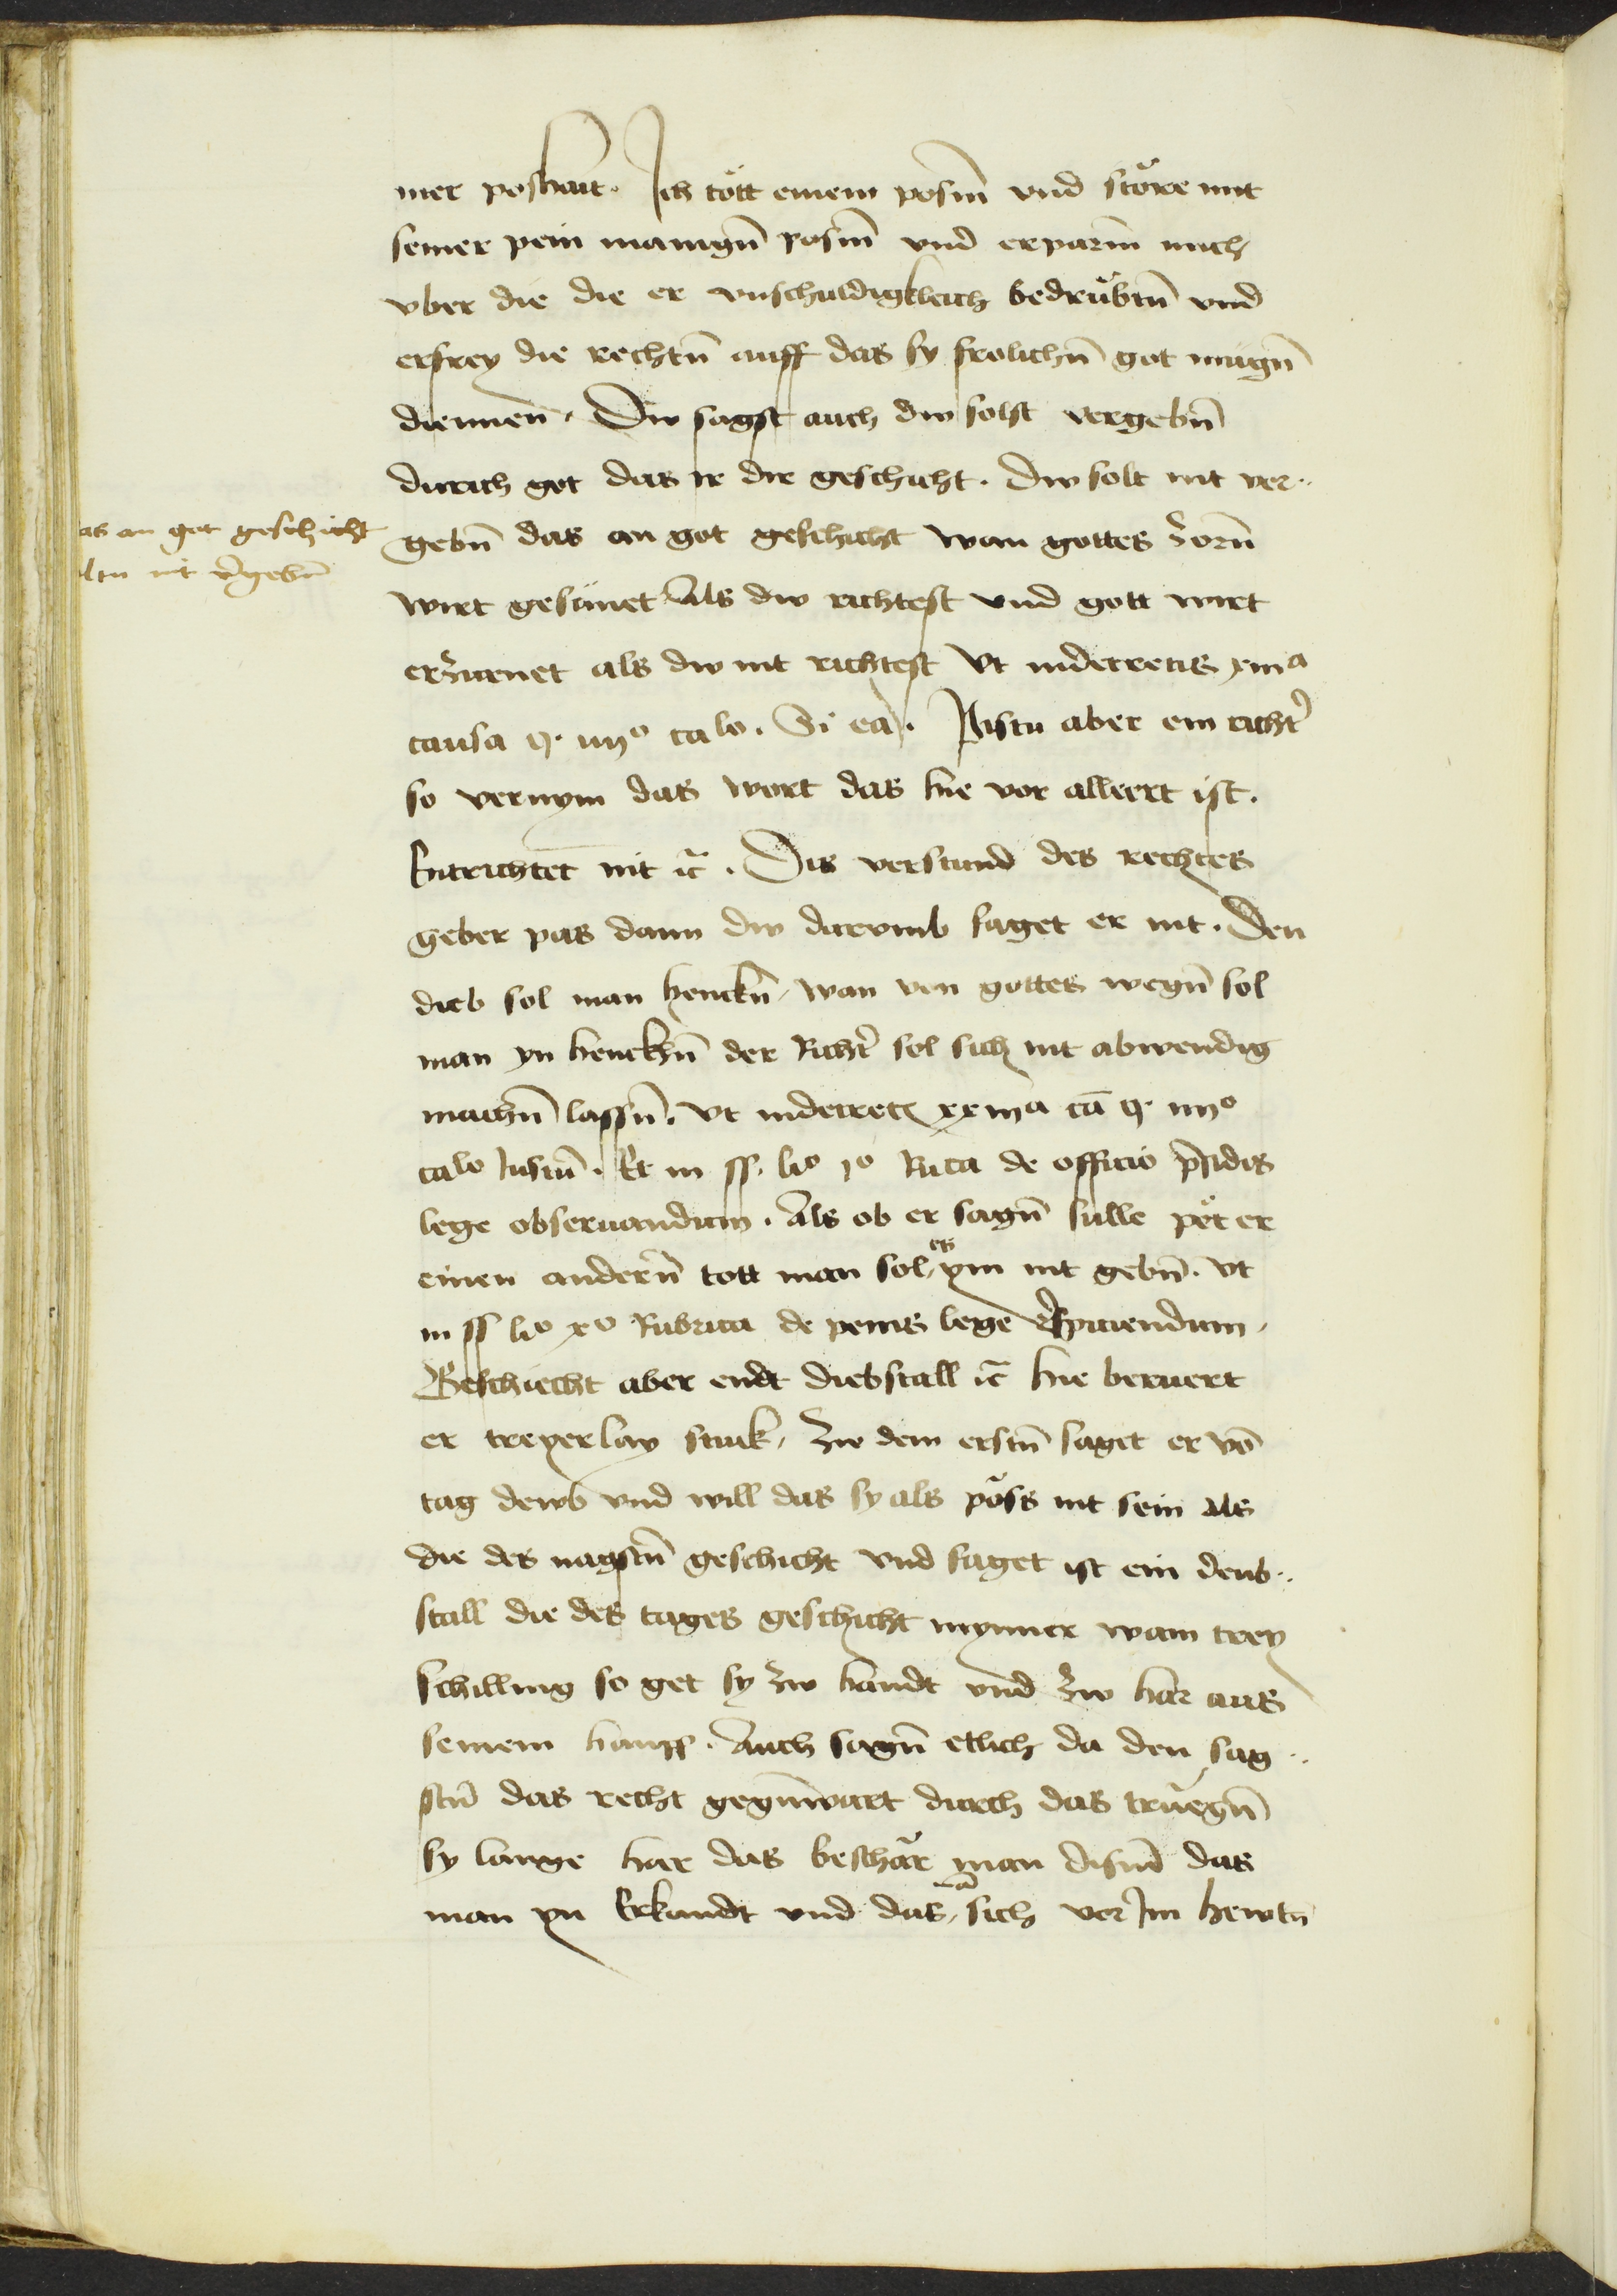 ner poshait. Ich tött einem posm̄ vnd störe mit
seiner pein manign̄ posm̄ vnd erparm̄ mich
vber die die er vnschuldigkleich bedrübtn̄ vnd
erfrey die rechtn̄ auff das sy frolichn̄ got mügn̄
diennen. Dw sagst auch dw solst vergebn̄
durich got das ir dir geschicht. dw solt nit ver..
as an got geschicht
ltu nit v̉gebn̄
gebn̄ das an got geschicht wan gottes zorn̄
wirt gesünet Als dw richtest vnd gott wirt
erzürnet als dw nit richtest Vt indecretis xiiiª
causa q. iiijº calº. Si ea. Pistu aber ein richt̉
so vernym das wort das hie vor alleert ist.
Entrichtet nit ꝛc̄. Dis verstund des rechtes
geber pas dann dw darvmb saget er nit. Den
dieb sol man henckn̄, wan von gottes wegn̄ sol
man yn henckhn̄ der Richt̉ sol sich nit abwendig
machn̄ lassn̄. vt indecret xxiijª cā q. iiijº
calº Iustū. Et in ff. liº jº Rica de officio p̄sidis
lege obseruandum. Als ob er sagn̄ sulle pët er
einen andern̄ tott man sol es ym nit gebn̄. Vt
in ff liº xº Rubrica de penis lege
Geschiecht aber endt diebstall ꝛc̄ hie beruert
er treyerlay stuk, Zw dem erstn̄ saget er vō
tag dewb vnd will das sy als pöss nit sein als
die des nagstn̄ geschicht vnd saget ist ein deub..
stall die des tages geschicht mynner wann trey
schilling so get sy zw handt vnd zw har aus
seinem haupp. Auch sagn̄ etlich da den sag..
stn̄ das recht gegn̄wart durch das truegn̄
sy lange har das beschar man dism̄ das
man yn Erkandt vnd das sich vor Im hewtn̄